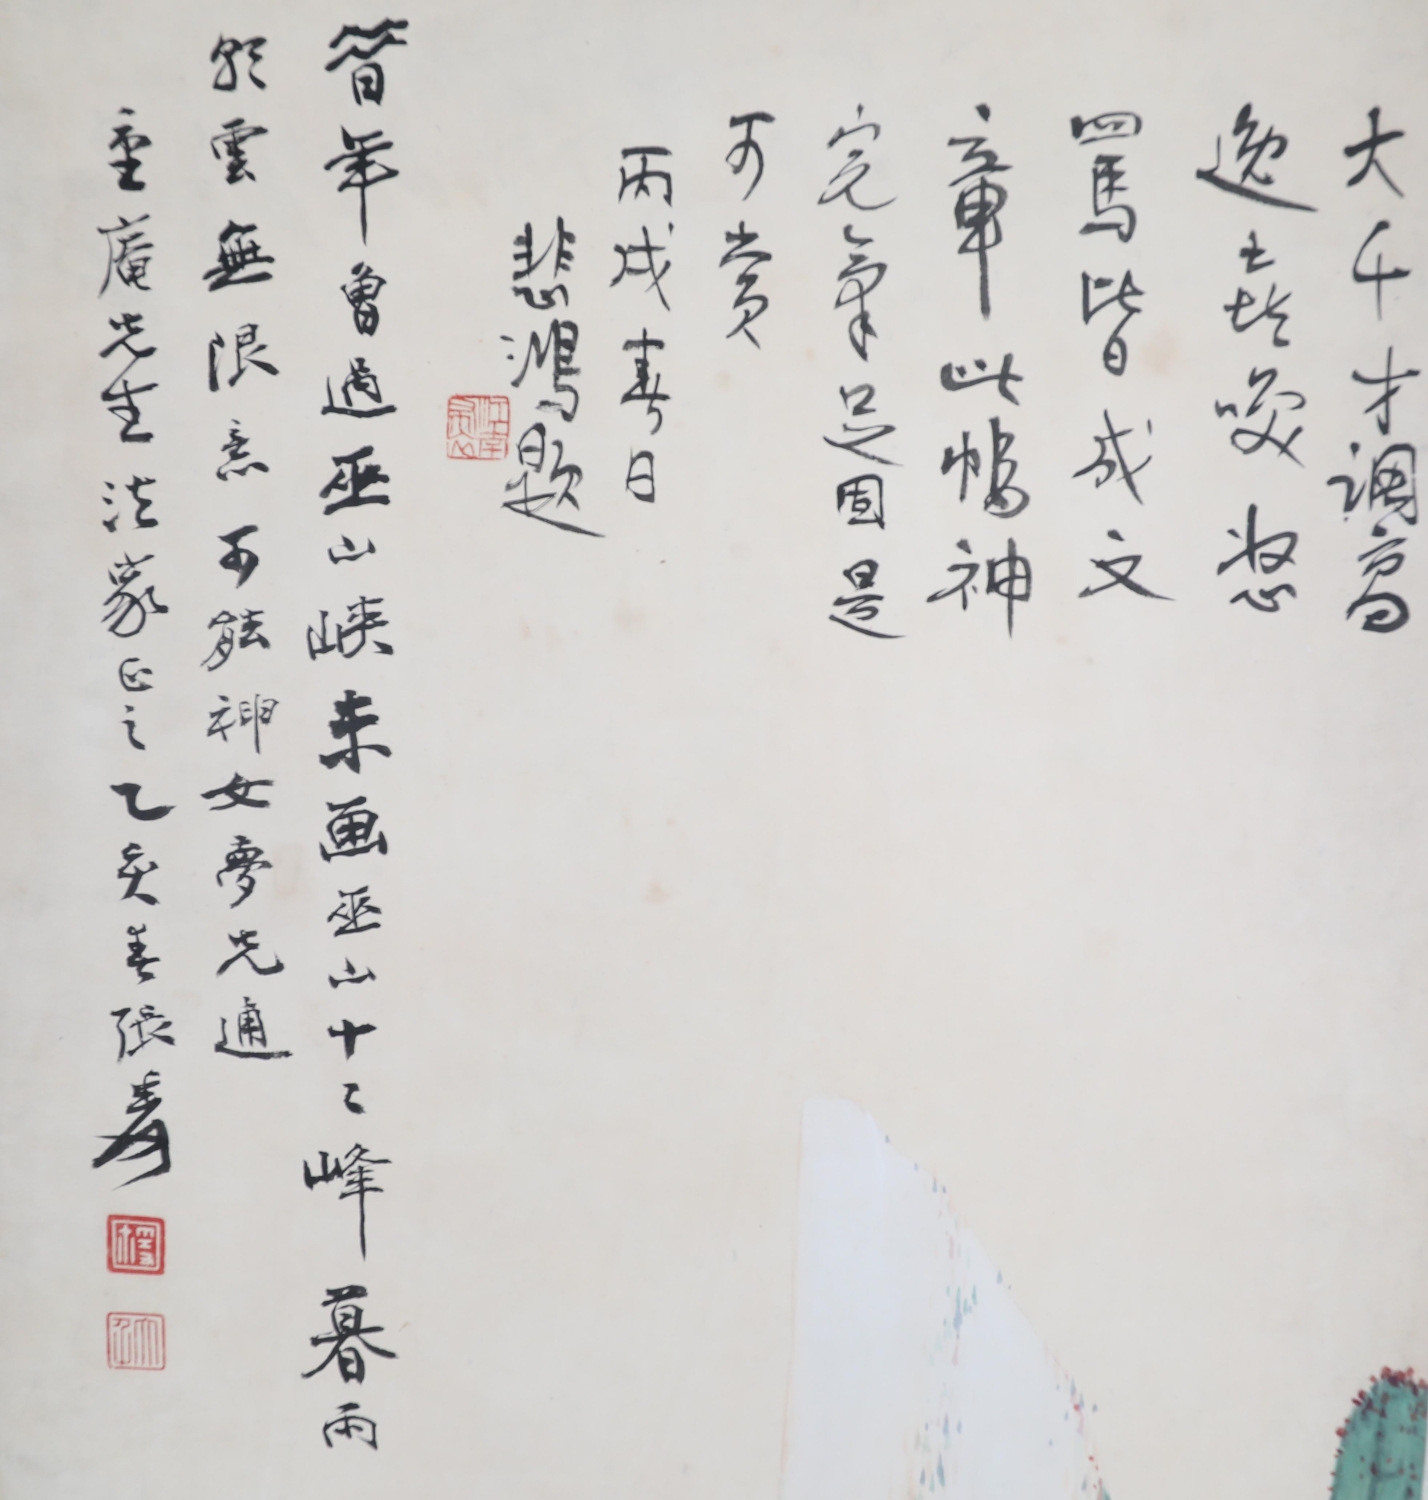 大千才調高
逸其嬉笑怒
罵皆成文
章此幀神
完氣足固是
可賞
丙戌春日
悲鴻題
昔年曾過巫山峽未画巫山十二峰暮雨
朝雲無限意可能神女夢先通
堊庵先生法家正之乙亥春張爰